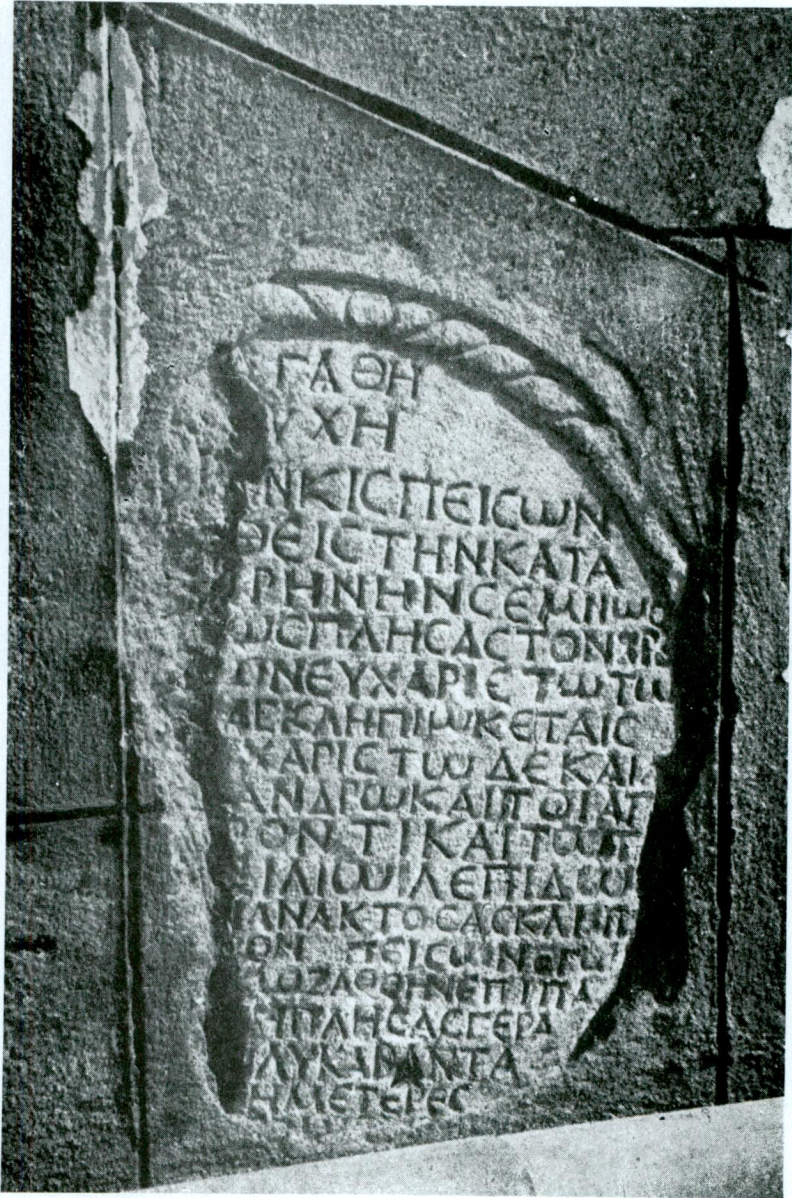 ΓΑΘΗ
ΥΧΗ
ΝΚΙϹΠΕΙϹωΝ
ΘΕΙϹΤΗΝΚΑΤΑ
ΡΗΝΗΝϹΕΜΝωϹ
ωϹΠΛΗϹΑϹΤΟΝ
ΝΕΥΧΑΡΙϹΤωΤω
ΑϹΚΛΗΠΙωΚΕΤΑΙϹ
ΧΑΡΙϹΤωΔΕΚΑΙ
ΑΝΔΡωΚΑΙΤωΙΑΓ
ΟΝΤΙΚΑΙΤωΤ
ΙΛΙωΛΕΠΙΔω
ΑΝΑΚΤΟϹΑϹΚΛΗΠ
ΟΝ ΠΕΙϹωΝΕΓω
ωΖΑΘΕΗΝΕΠΙΠΑ
ΠΛΗϹΑϹΓΕΡΑ
ΛΥΚΑΒΑΝΤΑ
ΗΜΕΤΕΡΕϹ